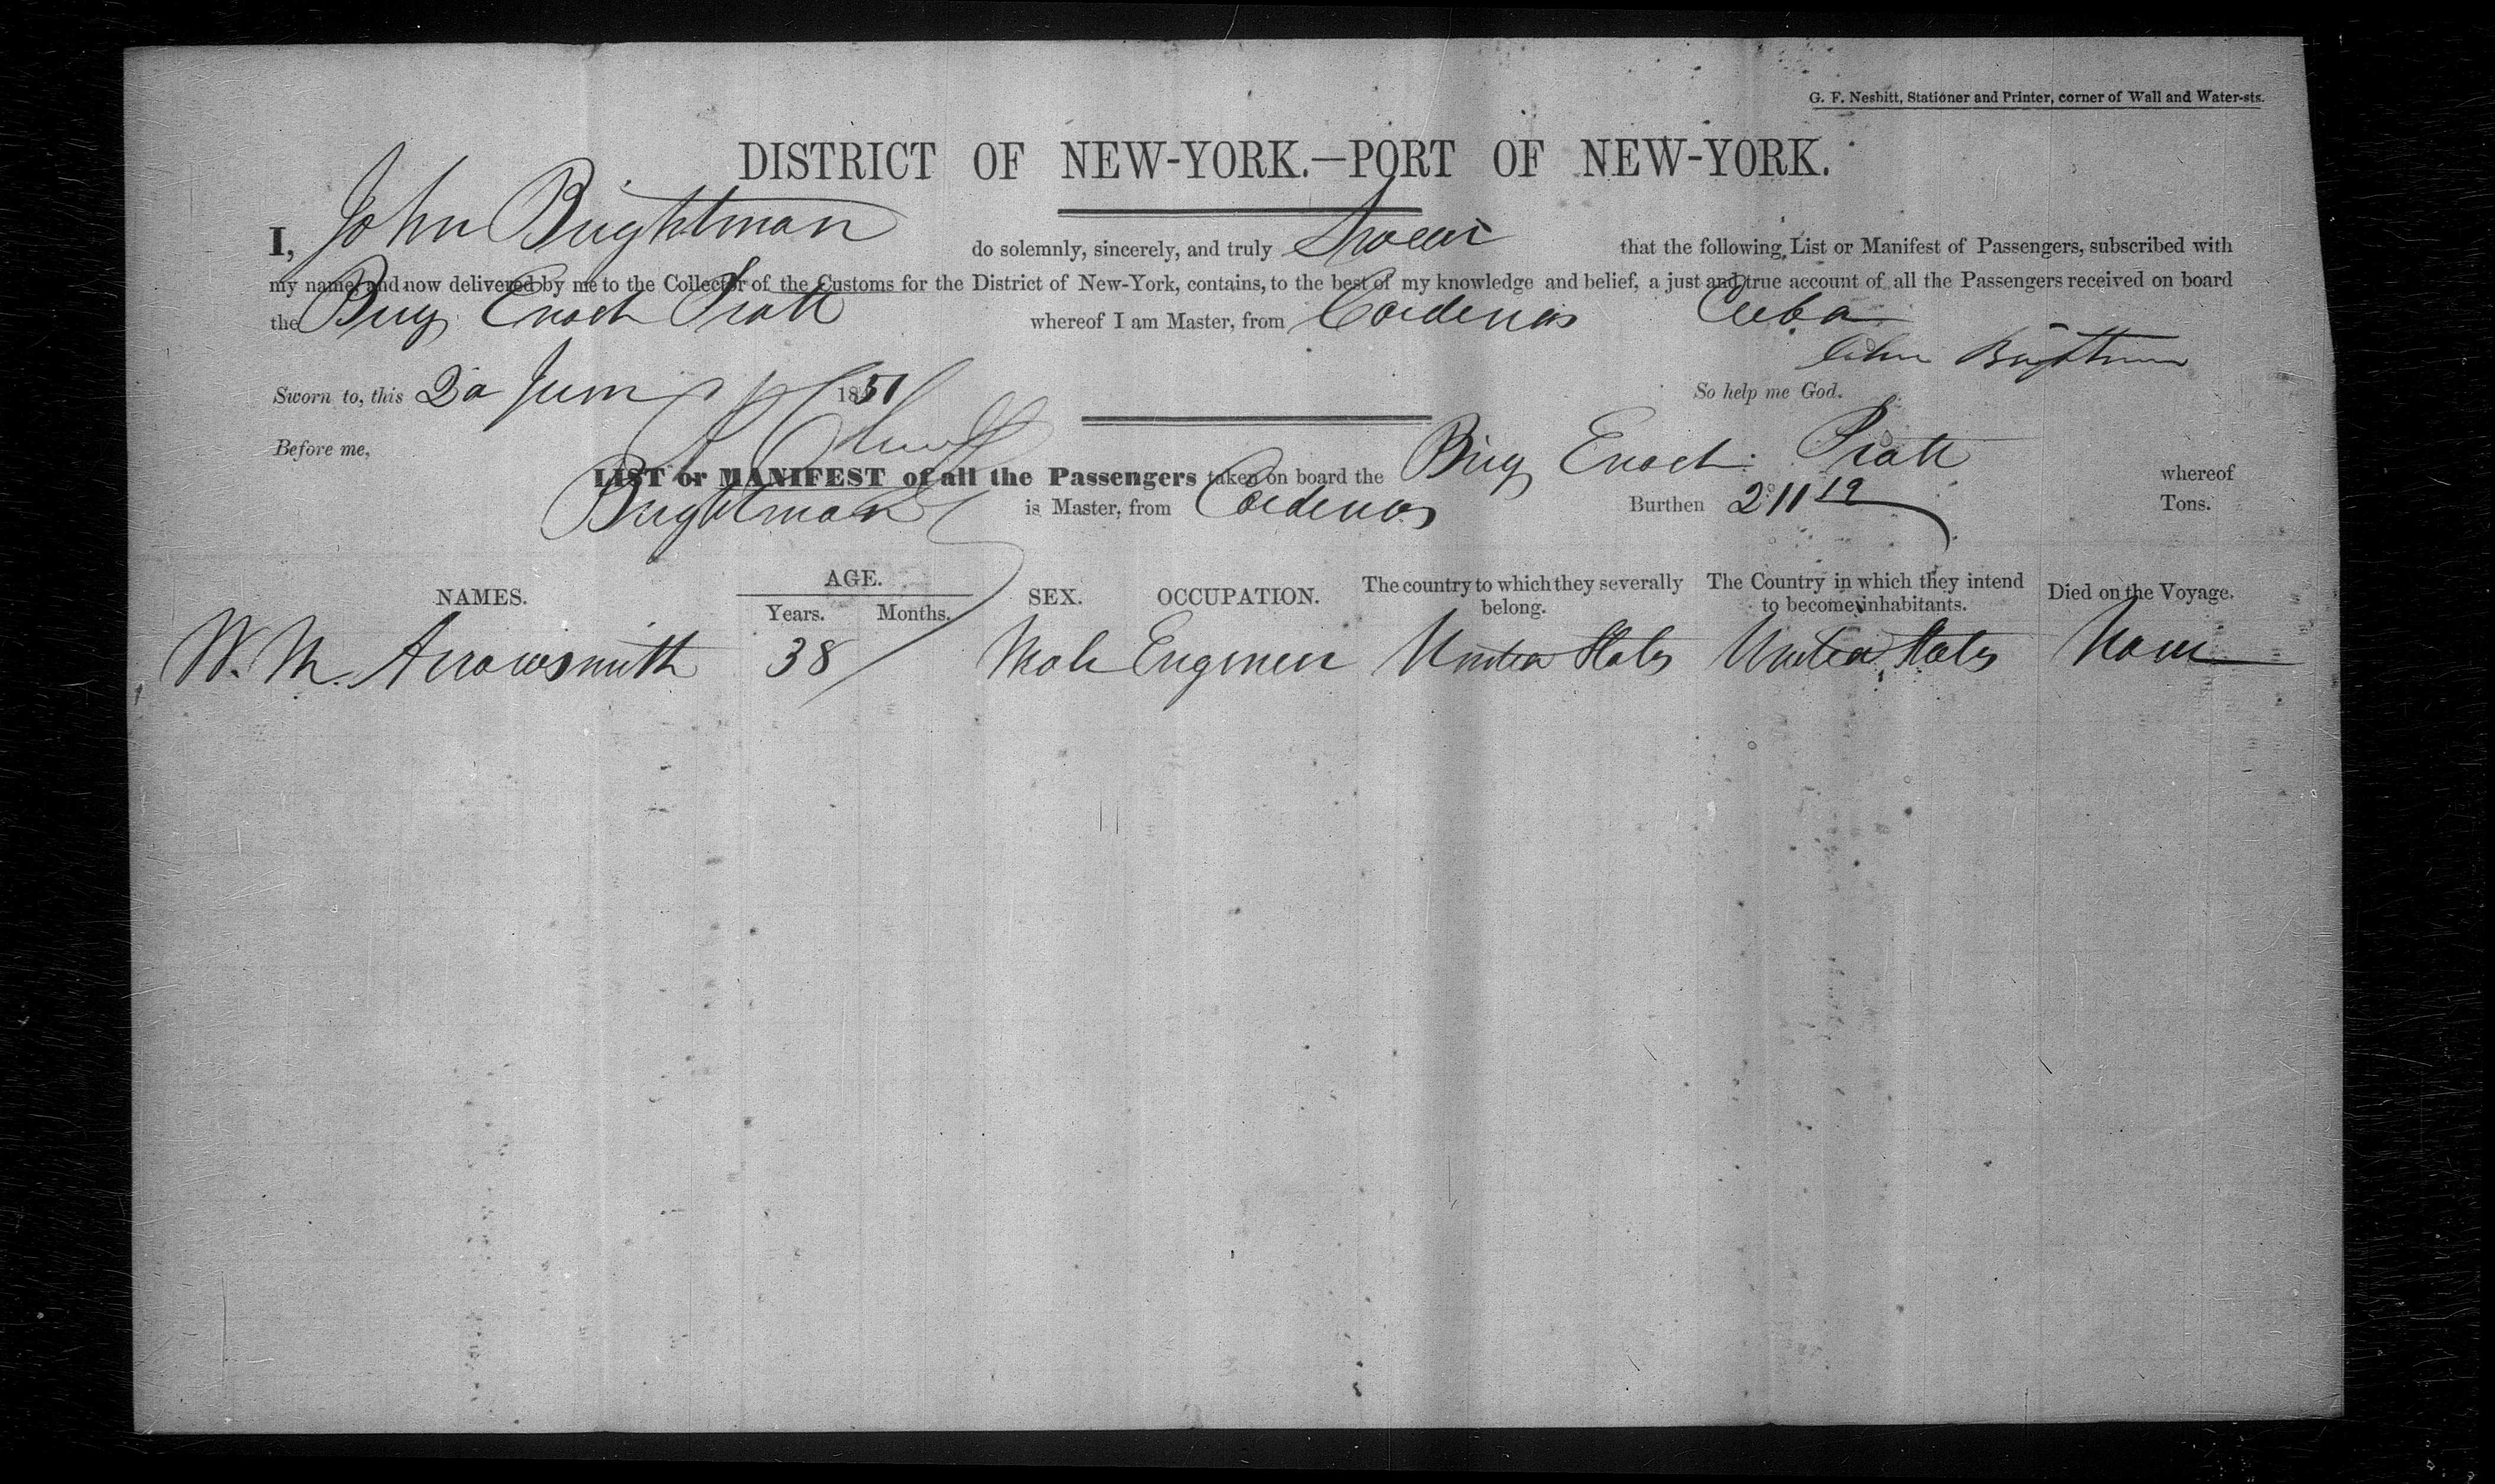 G. F. Nesbitt, Stationer and Printer, corner of Wall and Water-sts.
DISTRICT OF NEW-YORK.—PORT OF NEW-YORK.
I, John Brightman do solemnly, sincerely, and truly Swear that the following List or Manifest of Passengers, subscribed with
my name, and now delivered by me to the Collector of the Customs for the District of New-York, contains, to the best of my knowledge and belief, a just and true account of all the Passengers received on board
the Brig Enoch Pratt whereof I am Master, from Cardenas Cuba
John Brightman
Sworn to, this 20 June 1851 So help me God.
Before me,
LIST or MANIFEST of all the Passengers taken on board the Brig Enoch Pratt whereof
Brightman is Master, from Cardenas Burthen 211 19 Tons.
NAMES. AGE. Years. Months. SEX. OCCUPATION. The country to which they severally belong. The Country in which they intend to become inhabitants. Died on the Voyage.
W. M. Arrowsmith 38 Male Engineer United States United States None